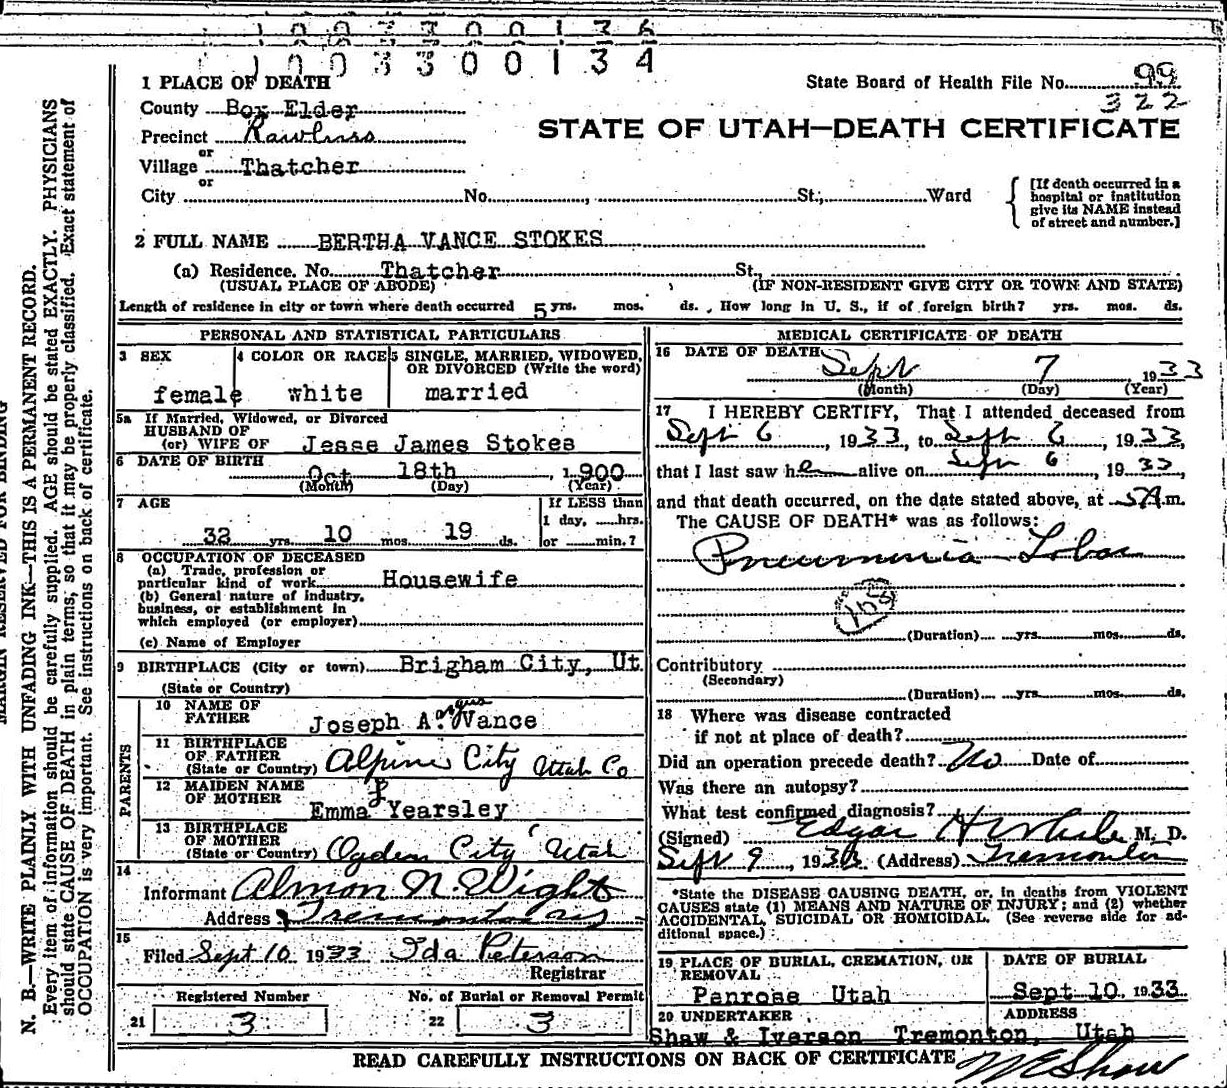 1 0 0 3 3 0 0 1 3 4
1 PLACE OF DEATH
State Board of Health File No. 99
322
County Box Elder
STATE OF UTAH—DEATH CERTIFICATE
Precinct
or
Village Thatcher
or
City No. St.; Ward
[If death occurred in a hospital or institution give its NAME instead of street and number.]
2 FULL NAME BERTHA VANCE STOKES
(a) Residence. No. Thatcher St.
(USUAL PLACE OF ABODE) (IF NON-RESIDENT GIVE CITY OR TOWN AND STATE)
Length of residence in city or town where death occurred 5 yrs. mos. ds. How long in U. S., if of foreign birth? yrs. mos. ds.
PERSONAL AND STATISTICAL PARTICULARS
3 SEX
female
4 COLOR OR RACE
white
5 SINGLE, MARRIED, WIDOWED,
OR DIVORCED (Write the word)
married
5a If Married, Widowed, or Divorced
HUSBAND OF
(or) WIFE OF Jesse James Stokes
6 DATE OF BIRTH
Oct 18th 1900
(Month) (Day) (Year)
7 AGE
32 yrs. 10 mos. 19 ds.
If LESS than
1 day, hrs.
or min.?
8 OCCUPATION OF DECEASED
(a) Trade, profession or
particular kind of work Housewife
(b) General nature of industry,
business, or establishment in
which employed (or employer)
(c) Name of Employer
9 BIRTHPLACE (City or town) Brigham City, Ut
(State or Country)
PARENTS
10 NAME OF
FATHER Joseph A. Vance
11 BIRTHPLACE
OF FATHER
(State or Country) Alpine City Utah Co
12 MAIDEN NAME
OF MOTHER Emma Yearsley
13 BIRTHPLACE
OF MOTHER
(State or Country) Ogden City Utah
14
Informant Almon N. Wight
Address Tremonton
15
Filed Sept 10 1933 Ida Peterson
Registrar
Registered Number No. of Burial or Removal Permit
21 3 22 3
MEDICAL CERTIFICATE OF DEATH
16 DATE OF DEATH
Sept 7 1933
(Month) (Day) (Year)
17 I HEREBY CERTIFY, That I attended deceased from
Sept 6, 1933, to Sept 6, 1933,
that I last saw he alive on Sept 6, 1933,
and that death occurred, on the date stated above, at 5 A.m.
The CAUSE OF DEATH* was as follows:
Pneumonia Lobar
(Duration) yrs. mos. ds.
Contributory
(Secondary)
(Duration) yrs. mos. ds.
18 Where was disease contracted
if not at place of death?
Did an operation precede death? No Date of
Was there an autopsy?
What test confirmed diagnosis?
(Signed) Edgar H M. D.
Sept 9, 1933 (Address) Tremonton
*State the DISEASE CAUSING DEATH, or, in deaths from VIOLENT
CAUSES state (1) MEANS AND NATURE OF INJURY; and (2) whether
ACCIDENTAL, SUICIDAL OR HOMICIDAL. (See reverse side for ad-
ditional space.)
19 PLACE OF BURIAL, CREMATION, OR
REMOVAL
Penrose Utah
DATE OF BURIAL
Sept 10, 1933
20 UNDERTAKER ADDRESS
Shaw & Iverson Tremonton, Utah
READ CAREFULLY INSTRUCTIONS ON BACK OF CERTIFICATE
MARGIN RESERVED FOR BINDING
N. B.—WRITE PLAINLY WITH UNFADING INK—THIS IS A PERMANENT RECORD.
Every item of information should be carefully supplied. AGE should be stated EXACTLY. PHYSICIANS
should state CAUSE OF DEATH in plain terms, so that it may be properly classified. Exact statement of
OCCUPATION is very important. See instructions on back of certificate.